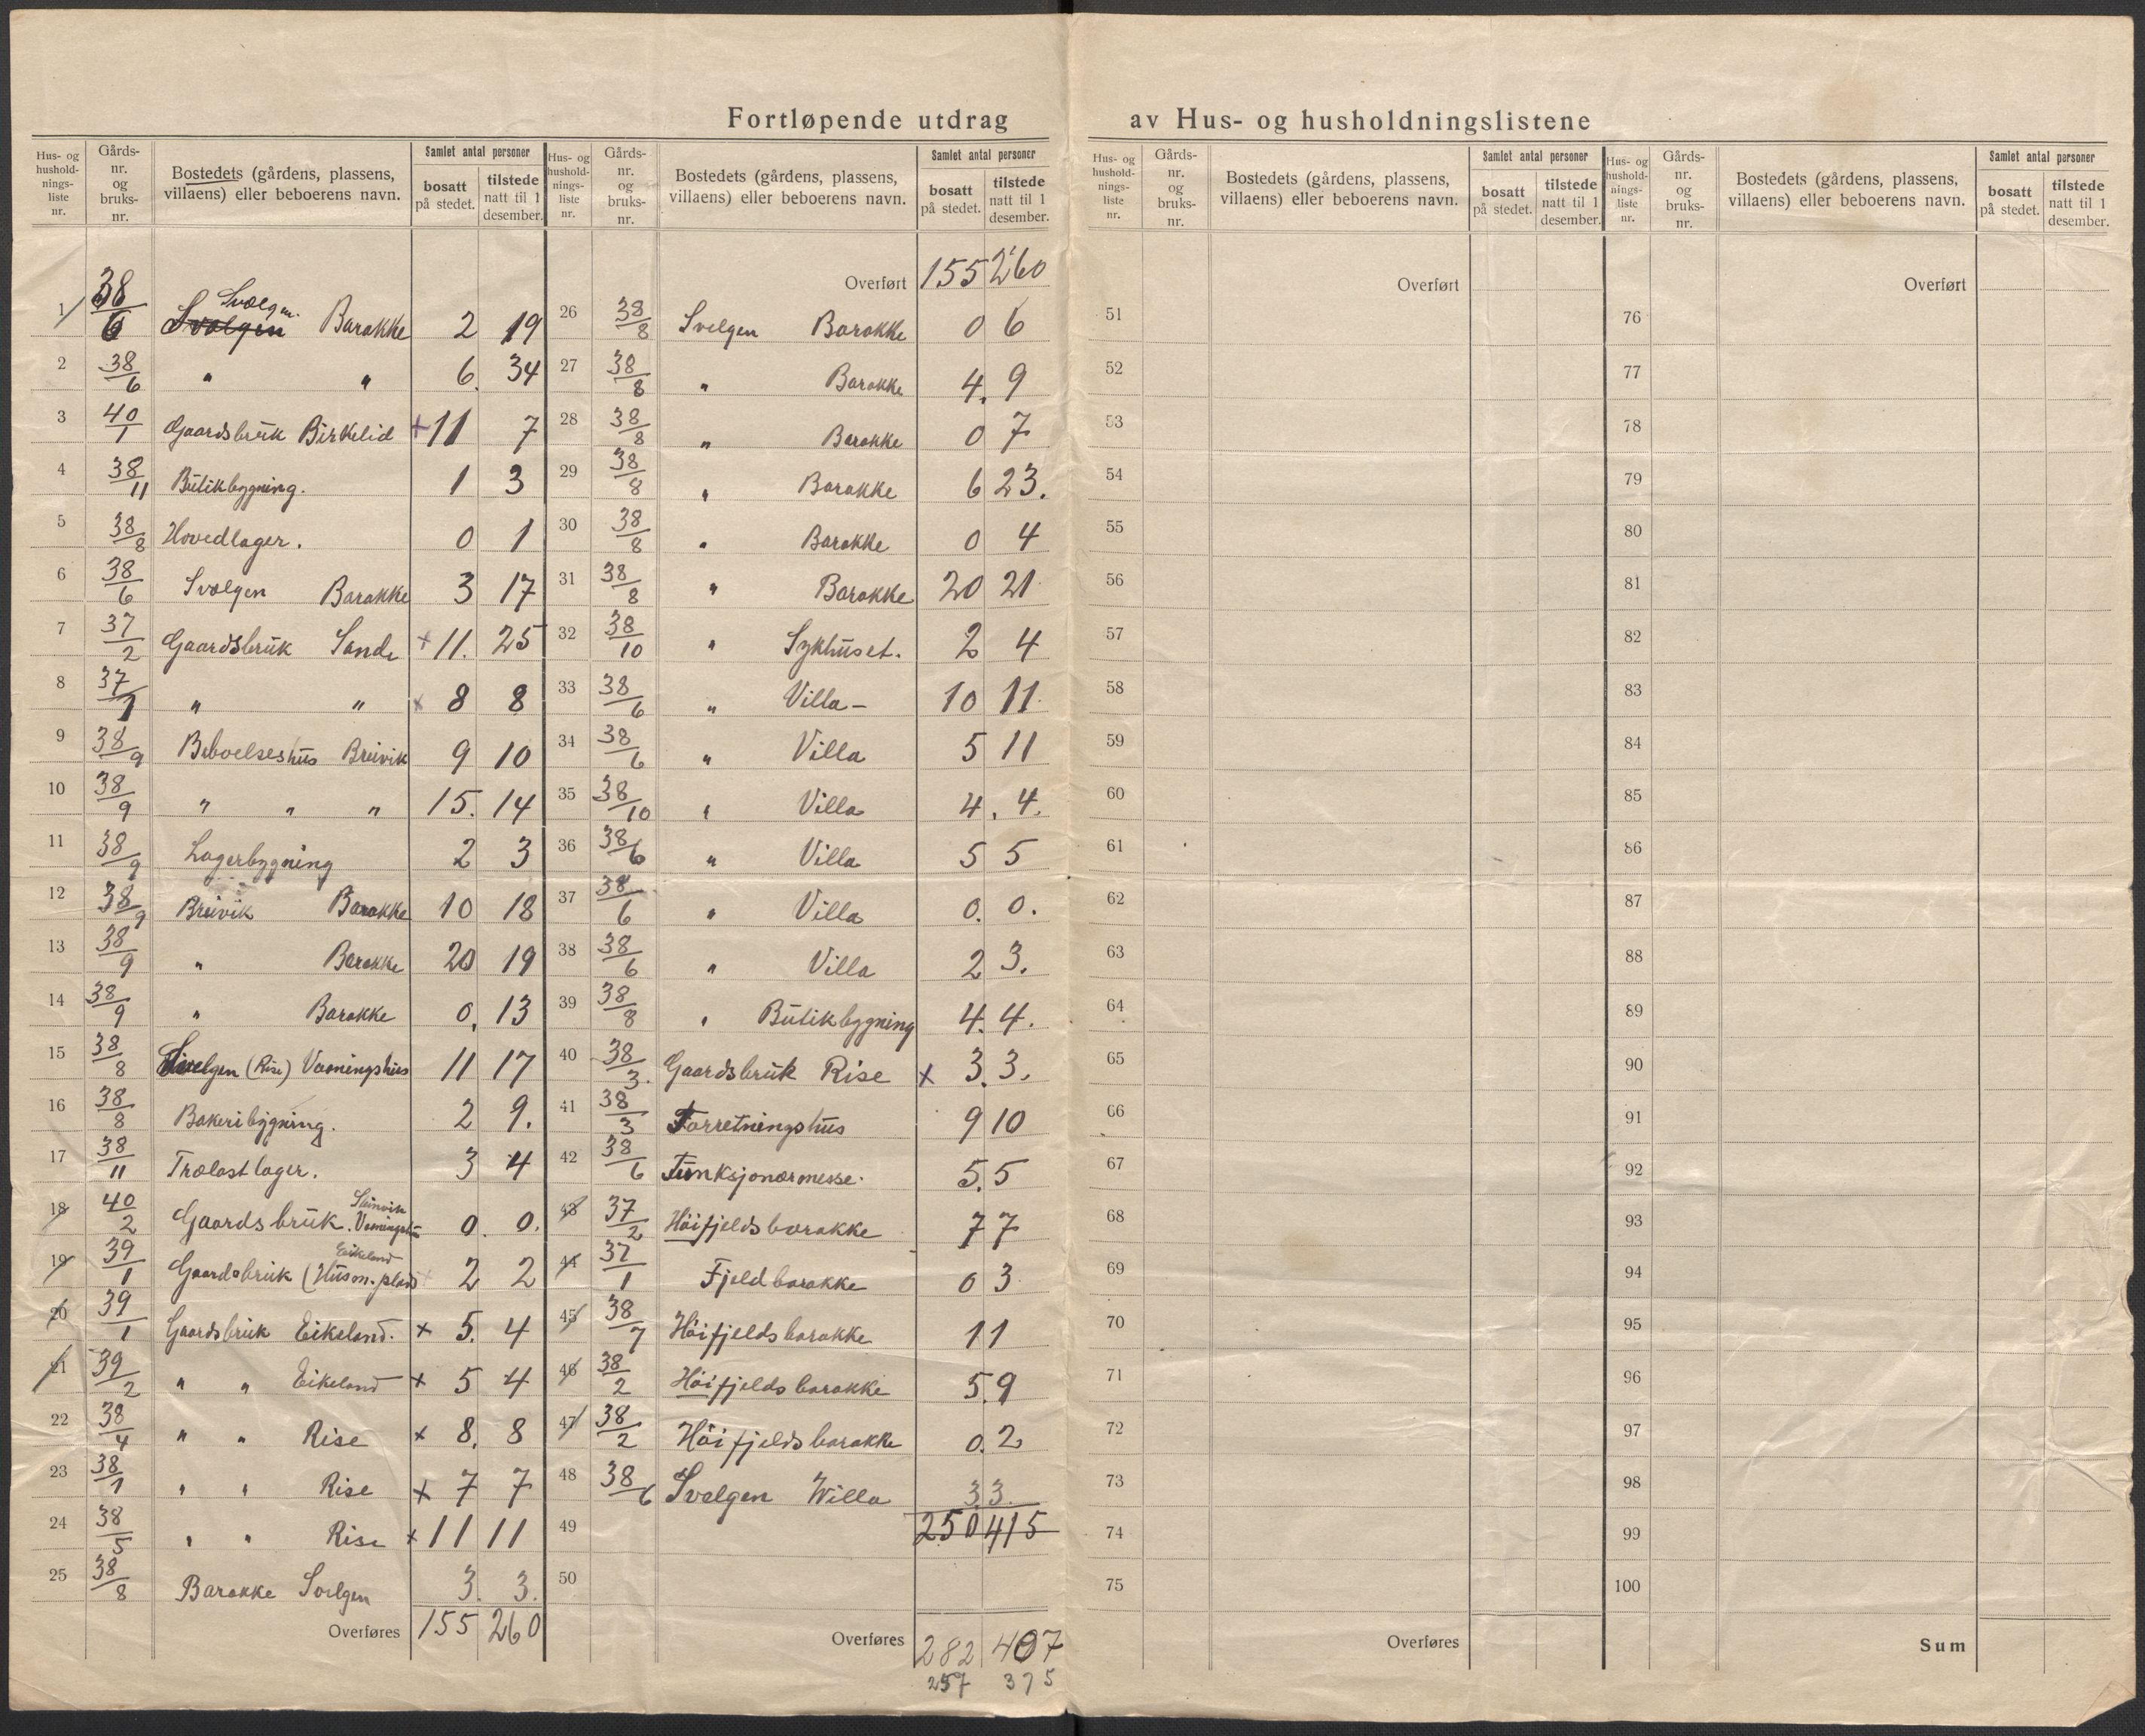 Fortløpende utdrag av Hus- og husholdningslistene
Hus- og husholdnings-liste nr. | Gårds-nr. og bruks-nr. | Bostedets (gårdens, plassens, villaens) eller beboerens navn. | Samlet antal personer: bosatt på stedet. | tilstede natt til 1 desember.
1 38/6 Svolgen Svælgen. Barakke 2 19
2 38/6 " " 6. 34
3 40/1 Gaardsbruk Birkelid +11 7
4 38/11 Butikbygning. 1 3
5 38/8 Hovedlager. 0 1
6 38/6 Svælgen Barakke 3 17
7 37/2 Gaardsbruk Sande +11. 25
8 37/1 " " x 8 8
9 38/9 Beboelseshus Breivik 9 10
10 38/9 " " " 15. 14
11 38/9 Lagerbygning 2 3
12 38/9 Breivik Barakke 10 18
13 38/9 " Barakke 20 19
14 38/9 " Barakke 0, 13
15 38/8 Svelgen (Rise) Vaaningshus 11 17
16 38/8 Bakeribygning. 2 9.
17 38/11 Trælastlager. 3 4
18 40/2 Gaardsbruk. Vaaningshus 0. 0.
19 39/1 Gaardsbruk Eikeland (Husm. plads 2 2
20 39/1 Gaardsbruk Eikeland. x 5. 4
21 39/2 " " Eikeland x 5 4
22 38/4 " " Rise x 8. 8
23 38/1 " " Rise x 7 7
24 38/5 " " Rise x 11 11
25 38/8 Barakke Svelgen 3. 3.
Overføres 155 260
Hus- og husholdnings-liste nr. | Gårds-nr. og bruks-nr. | Bostedets (gårdens, plassens, villaens) eller beboerens navn. | Samlet antal personer: bosatt på stedet. | tilstede natt til 1 desember.
Overført 155 260
26 38/8 Svelgen Barakke 0 6
27 38/8 " Barakke 4. 9
28 38/8 " Barakke 0 7
29 38/8 " Barakke 6 23.
30 38/8 " Barakke 0 4
31 38/8 " Barakke 20 21
32 38/10 " Sykhuset. 2 4
33 38/6 " Villa - 10 11.
34 38/6 " Villa 5 11
35 38/10 " Villa 4. 4.
36 38/6 " Villa 5 5
37 38/6 " Villa 0. 0.
38 38/6 " Villa 2 3.
39 38/8 " Butikbygning 4. 4.
40 38/3. Gaardsbruk Rise x 3. 3.
41 38/3 Forretningshus 9 10
42 38/6 Funksjonærmesse. 5. 5
43 37/2 Höifjeldsbarakke 7 7
44 37/1 Fjeldbarakke 0 3
45 38/7 Höifjeldsbarakke 1 1
46 38/2 Höifjeldsbarakke 5. 9
47 38/2 Höifjeldsbarakke 0. 2
48 38/6 Svelgen Willa 3. 3.
49 250 415
50
Overføres 282 407
257 375
Hus- og husholdnings-liste nr. | Gårds-nr. og bruks-nr. | Bostedets (gårdens, plassens, villaens) eller beboerens navn. | Samlet antal personer: bosatt på stedet. | tilstede natt til 1 desember.
Overført
51
52
53
54
55
56
57
58
59
60
61
62
63
64
65
66
67
68
69
70
71
72
73
74
75
Overføres
Hus- og husholdnings-liste nr. | Gårds-nr. og bruks-nr. | Bostedets (gårdens, plassens, villaens) eller beboerens navn. | Samlet antal personer: bosatt på stedet. | tilstede natt til 1 desember.
Overført
76
77
78
79
80
81
82
83
84
85
86
87
88
89
90
91
92
93
94
95
96
97
98
99
100
Sum